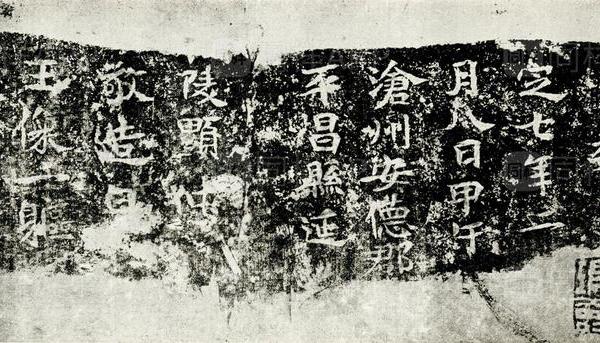 定七年二
月八日甲午
滄州安德郡
平昌縣延
陵顯仲
敬造白
玉像一軀